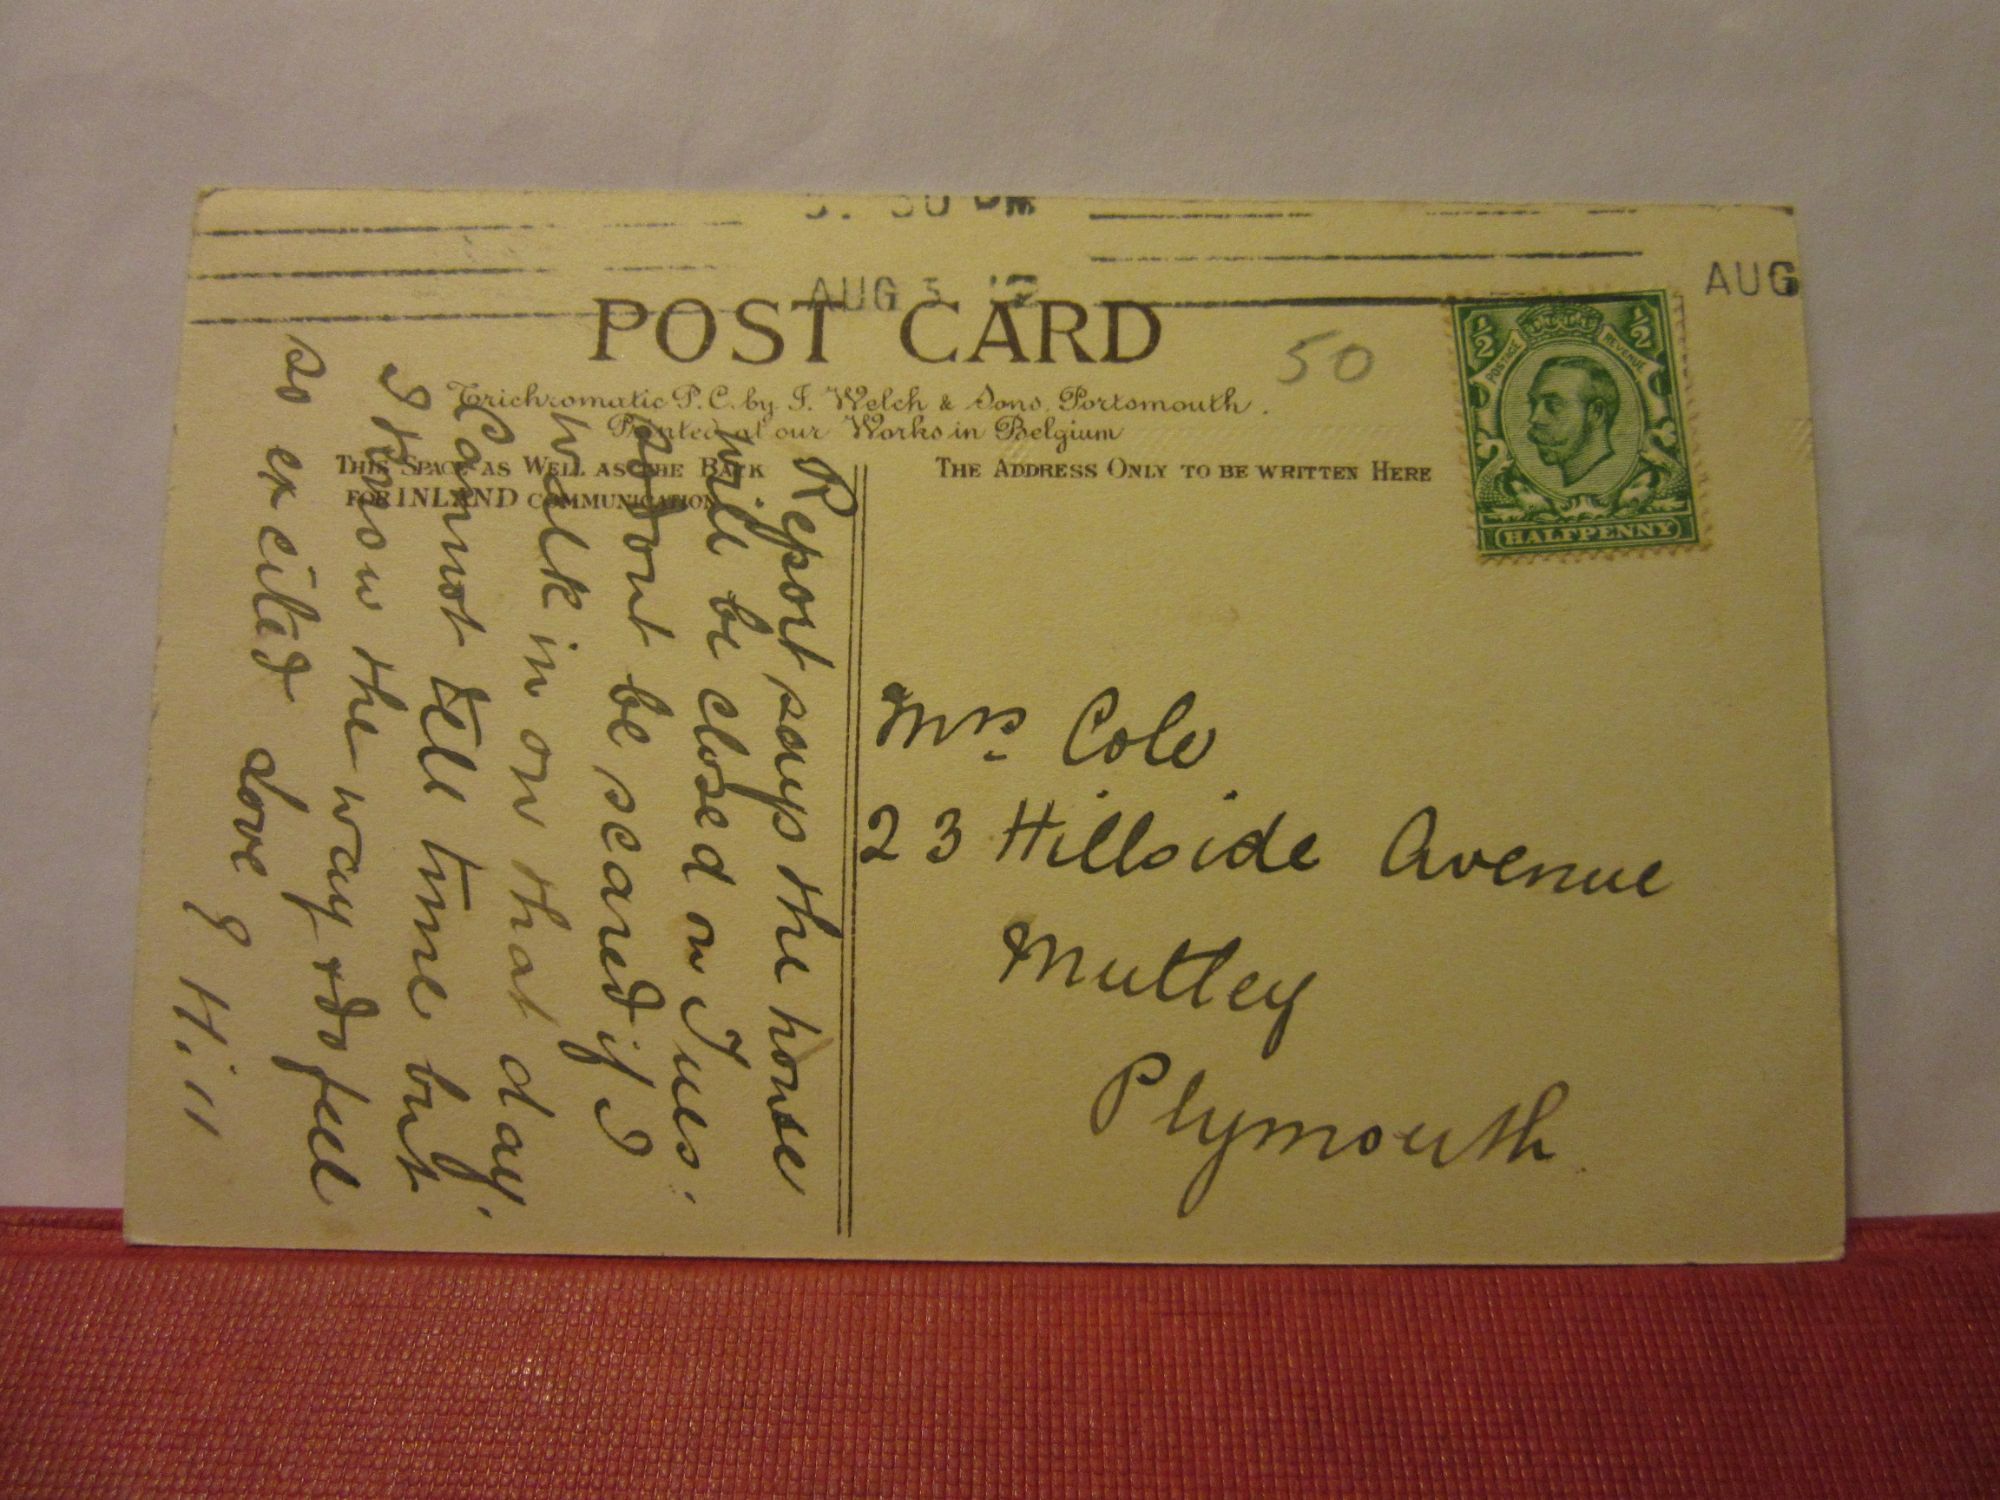 AUG 5 '12
AUG
POST CARD
50
Trichromatic P.C. by J. Welch & Sons, Portsmouth.
Printed at our Works in Belgium
THIS SPACE AS WELL AS THE BACK
FOR INLAND COMMUNICATION
THE ADDRESS ONLY TO BE WRITTEN HERE
½ ½
POSTAGE REVENUE
HALFPENNY
Report says the house
will be closed on Tues.
so dont be scared if I
walk in on that day.
Cannot tell time but
I know the way & do feel
so excited love
J Hill
Mrs. Cole
23 Hillside Avenue
Mutley
Plymouth